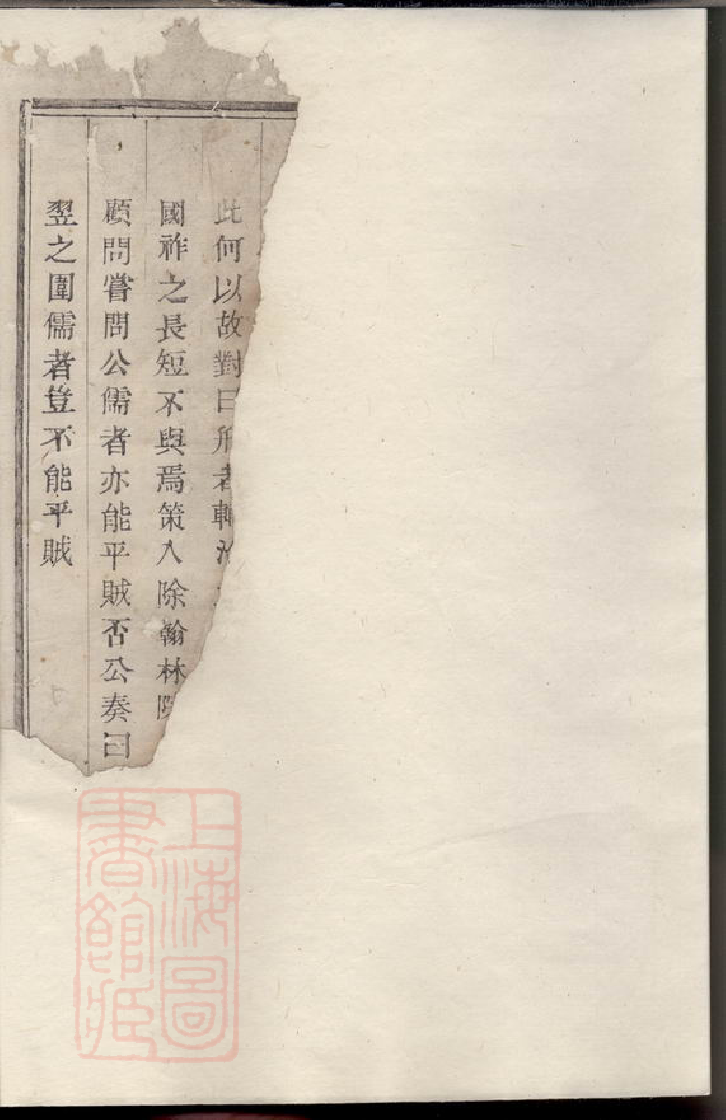 此何以故對曰刑者輔治之
國祚之長短不與焉策入除翰林院
顧問嘗問公儒者亦能平賊否公奏曰
翌之圍儒者豈不能平賊
上海圖
書館藏